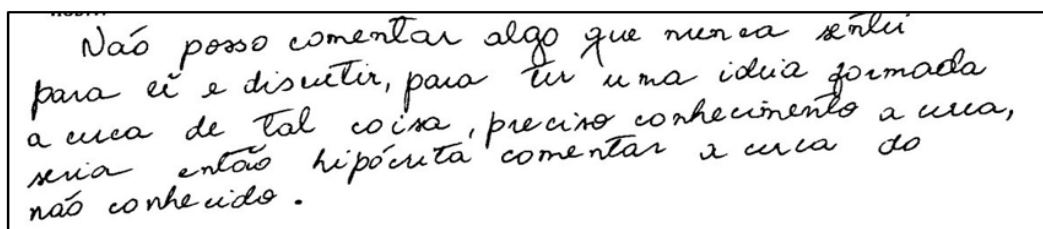 Não posso comentar algo que nunca senti
para ci e discutir, para ter uma idéia formada
a cerca de tal coisa, preciso conhecimento a cerca,
seria então hipócrita comentar a cerca do
não conhecido.